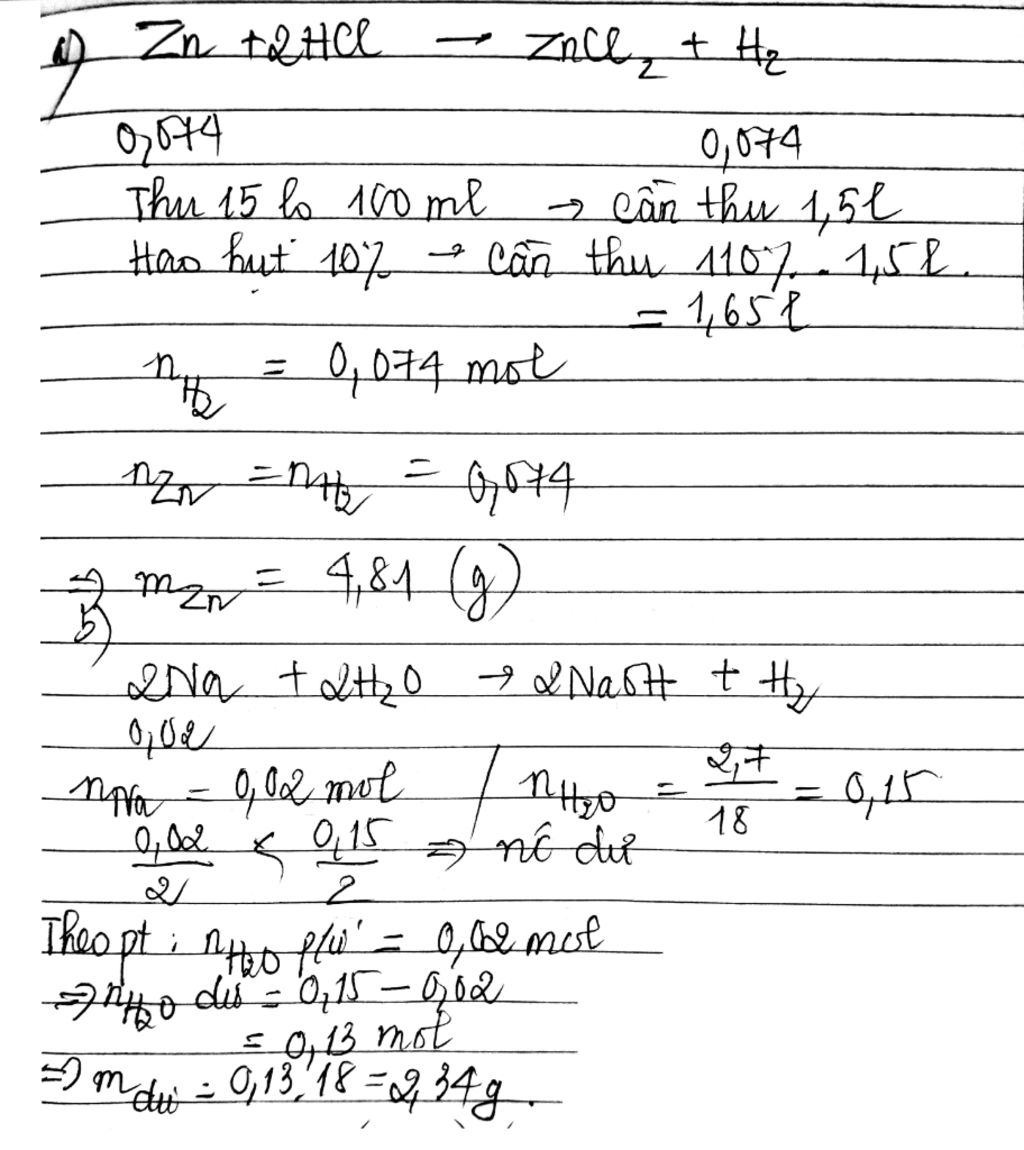 a) Zn + 2HCl → ZnCl₂ + H₂
0,074 0,074
Thu 15 lọ 100 ml → cần thu 1,5l
Hao hụt 10% → cần thu 110% . 1,5l.
= 1,65l
n_H₂ = 0,074 mol
n_Zn = n_H₂ = 0,074
⇒ m_Zn = 4,81 (g)
b)
2Na + 2H₂O → 2NaOH + H₂
0,02
n_Na = 0,02 mol / n_H₂O = 2,7/18 = 0,15
0,02/2 < 0,15/2 ⇒ nc dư
Theo pt : n_H₂O p/ư = 0,02 mol
⇒ n_H₂O dư = 0,15 − 0,02
= 0,13 mol
⇒ m dư = 0,13.18 = 2,34g.